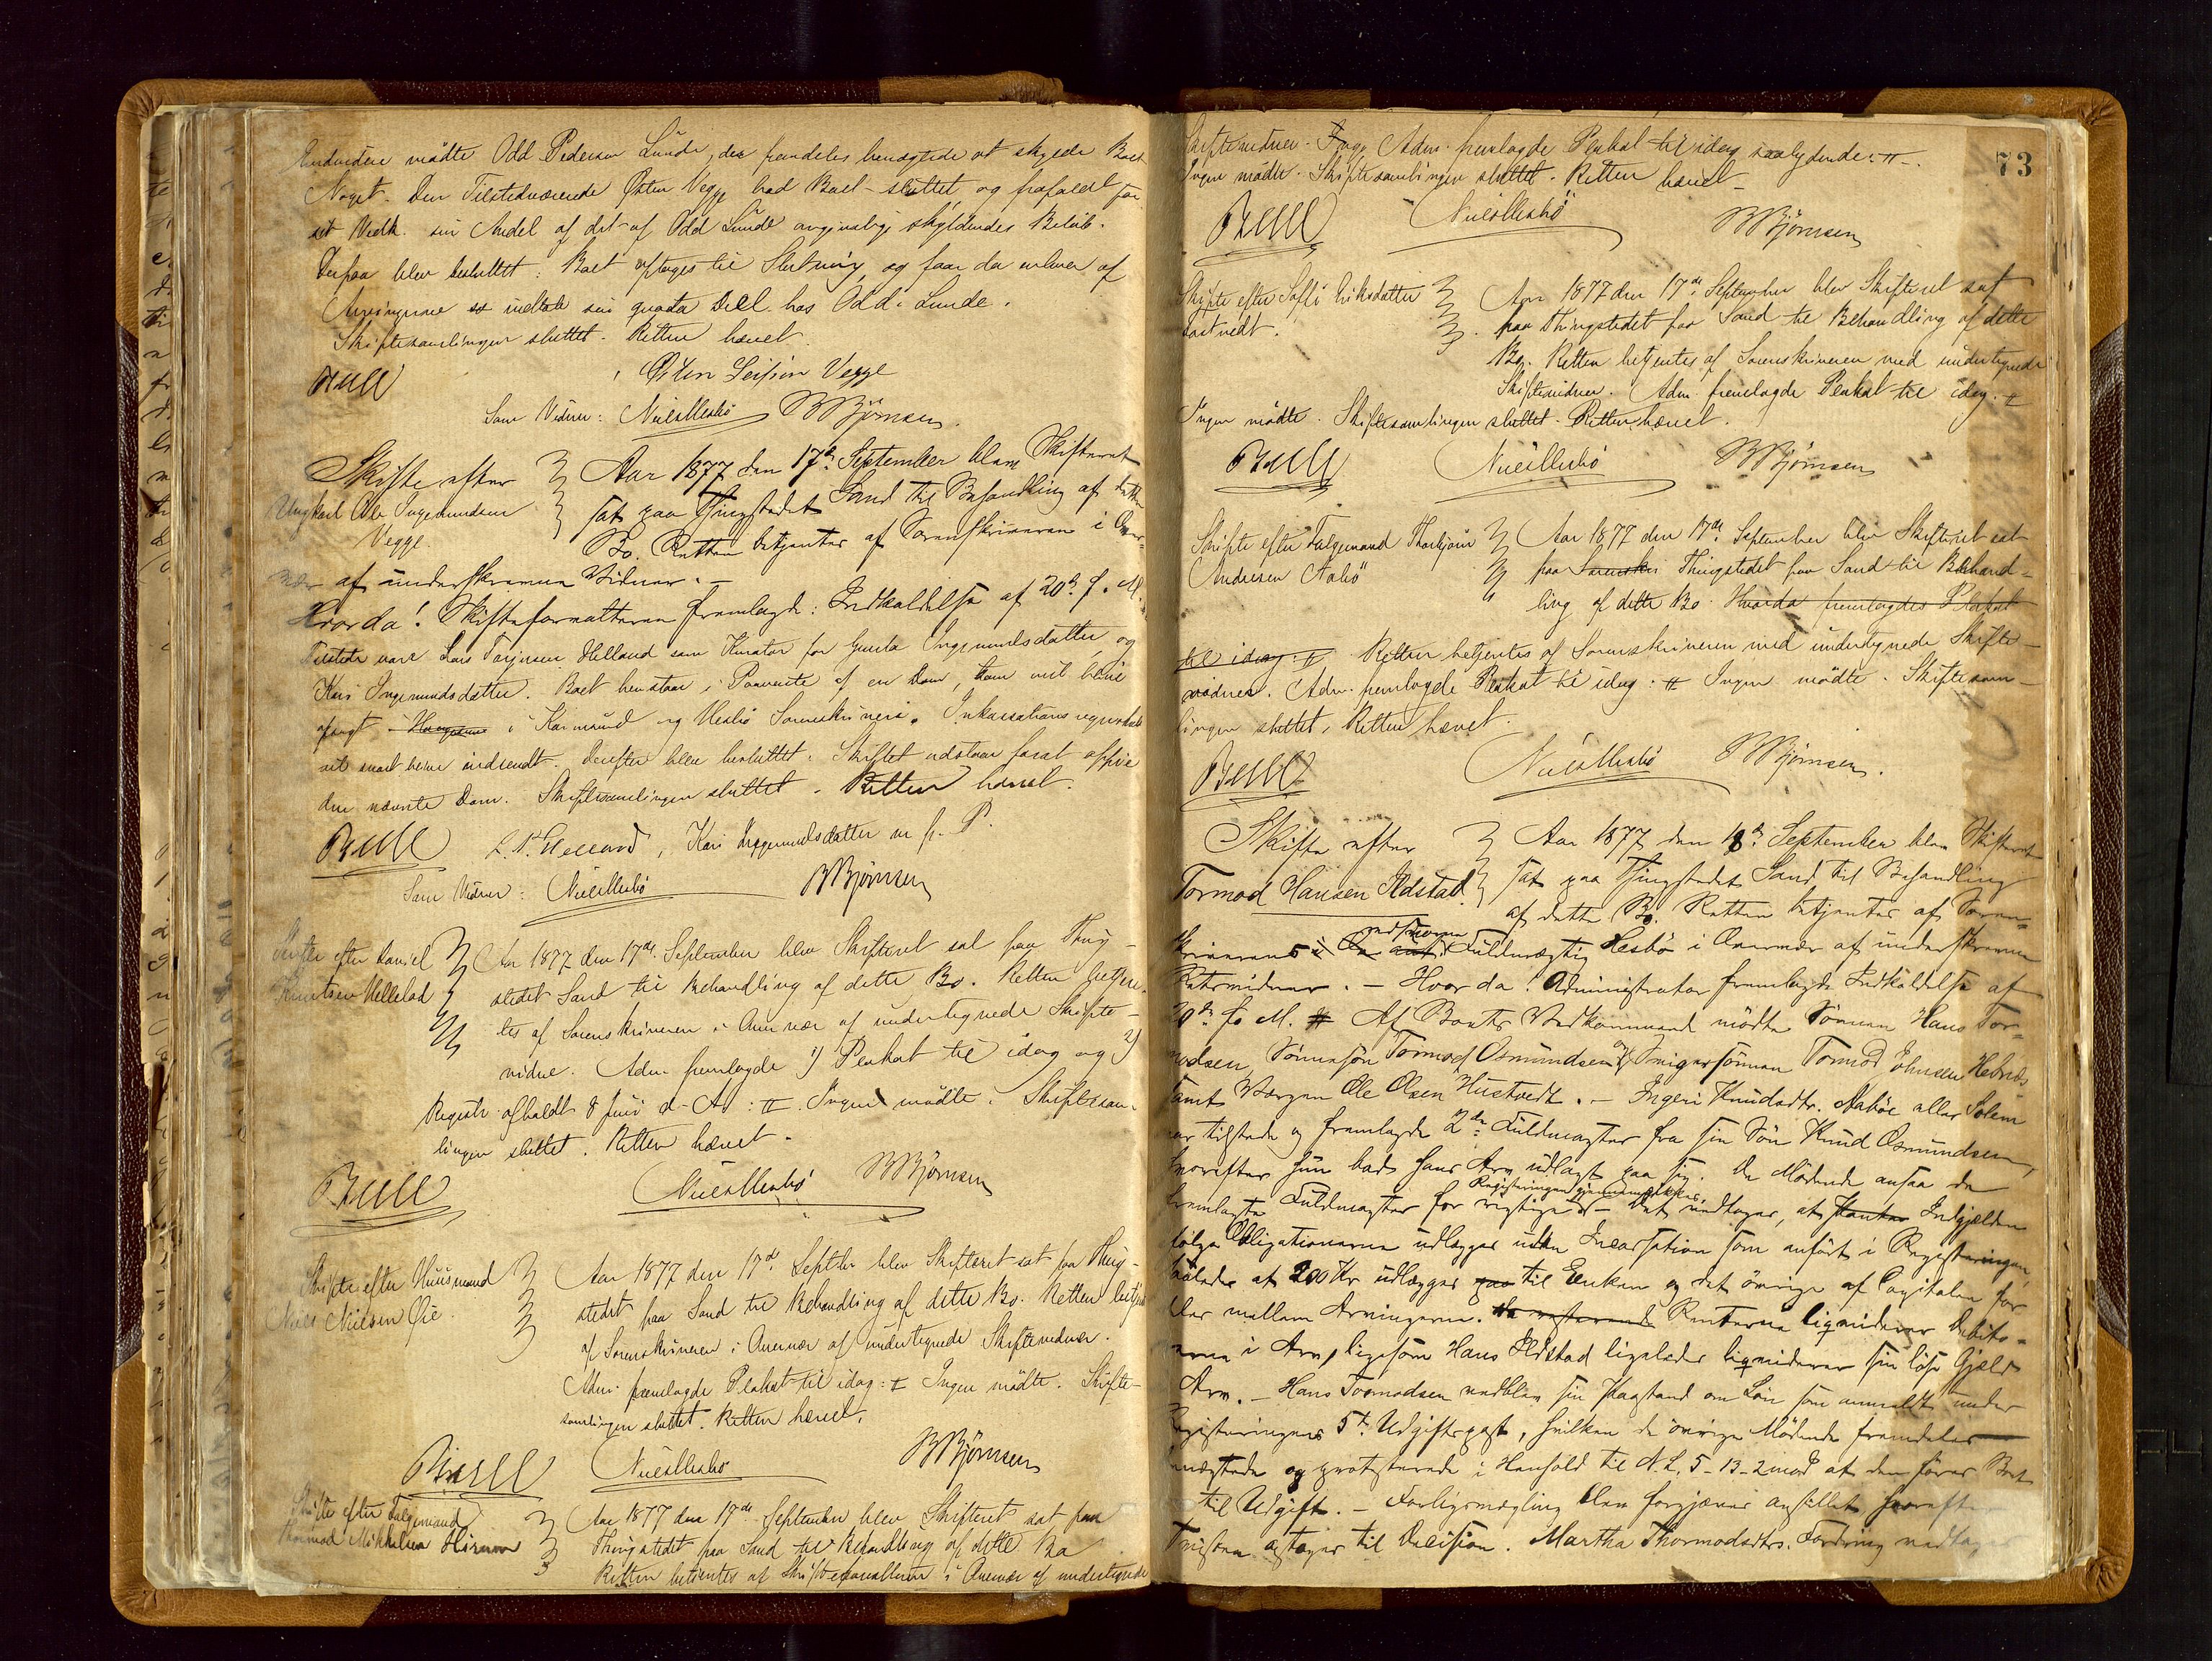 Endvidere mødte Odd Pedersen Lunde, der fremdeles benægtede at skylde Boet
Noget. Den Tilstedeværende Østen Vegge bad Boet sluttet og frafaldt for
sit Vedk. sin Andel af det af Odd Lunde angivelig skyldendes Beløb.
Derpaa blev besluttet: Boet optages til Slutning, og faar da enhver af
Arvingerne indtale sin quota Deel hos Odd Lunde.
Skiftesamlingen sluttet. Retten hævet.
Østen Vegge
Som Vidner: BBjørnsen.
Skifte efter
Ungkarl Ole Ingemundsen
Vegge.
Aar 1877 den 17de September blev Skifteret
sat paa Thingstedet Sand til Behandling af dette
Bo. Retten betjentes af Sorenskriveren i Over-
vær af underskrevne Vidner. –
Hvorda! Skifteforvalteren fremlagde: Indkaldelse af 20de f. M.
Tilstede vare Lars Helland som Kurator for Ingemundsdatter, og
Kari Ingemundsdatter. Boet henstaar i Paavente af en Dom, som vil blive
afsagt i Karmsund og Hesbø Sorenskriveri.
vil snart blive indsendt. Derefter blev besluttet: Skiftet udstaar forat
den nævnte Dom. Skiftesamlingen sluttet. Retten hævet.
Kari Ingemundsdatter m. f. P.
Som Vidner: BBjørnsen
Skifte efter Daniel
Knutsen Mellelad
Aar 1877 den 17de September blev Skifteret sat paa Thing-
stedet Sand til Behandling af dette Bo. Retten betjen-
tes af Sorenskriveren i Overvær af undertegnede Skifte-
vidne. Adm. fremlagde 1) Plakat til idag og 2)
Registr. afholdt 8 Juni d. A. Ingen mødte. Skiftesam-
lingen sluttet. Retten hævet.
BBjørnsen
Skifte efter Huusmand
Niels Nielsen Øie.
Aar 1877 den 17de Septbr blev Skifteret sat paa Thing-
stedet paa Sand til Behandling af dette Bo. Retten betjent
af Sorenskriveren i Overvær af undertegnede Skiftevidner.
Adm. fremlagde Plakat til idag: Ingen mødte. Skifte-
samlingen sluttet. Retten hævet.
BBjørnsen
Skifte efter Følgemand
Thormod Mikkelsen
Aar 1877 den 17de September blev Skifteret sat paa
Thingstedet paa Sand til Behandling af dette Bo
Retten betjentes af Skifteforvalteren i Overvær af undertegnede
73
Skiftevidner. Adm. fremlagde Plakat til idag saalydende:
Ingen mødte. Skiftesamlingen sluttet. Retten hævet.
BBjørnsen
Skifte efter Eriksdatter
Aar 1877 den 17de September blev Skifteret sat
paa Thingstedet paa Sand til Behandling af dette
Bo. Retten betjentes af Sorenskriveren med undertegnede
Skiftevidner. Adm. fremlagde Plakat til idag.
Ingen mødte. Skiftesamlingen sluttet. Retten hævet.
BBjørnsen
Skifte efter Følgemand Thorbjørn
Andersen Aabø
Aar 1877 den 17de September blev Skifteret sat
paa Sorenskri Thingstedet paa Sand til Behand-
ling af dette Bo. Hvorda fremlagdes Plakat
til idag. Retten betjentes af Sorenskriveren med undertegnede Skifte-
vidner. Adm. fremlagde Plakat til idag: Ingen mødte. Skiftesam-
lingen sluttet, Retten hævet.
BBjørnsen.
Skifte efter
Tormod Hansen Ildstad.
Aar 1877 den 18de September blev Skifteret
sat paa Thingstedet Sand til Behandling
af dette Bo. Retten betjentes af Soren-
skriverens edsvorne Fuldmægtig Hesbø i Overvær af underskrevne
Retsvidner. – Hvor da! Administrator fremlagde Indkaldelse af
20de f. M. Af Boets Vedkommende mødte Sønnen Hans Tor-
modsen, Sønnesøn Tormod Osmundsen og Svigersønnen Tormod Johnsen
samt Værgen Ole Olsen Hustvedt. – Ingeri Knudsdtr. Aabøe eller Solem
var tilstede og fremlagde 2de Fuldmagter fra sin Søn Knud Osmundsen,
hvorefter hun bad hans Arv udlagt paa sig. De Mødende ansaa de
fremlagte Fuldmagter for rigtige. – Registreringen gjennemgikkes. Det vedtoges, at Indgjælden
ifølge Obligationerne udlægges uden Incassation som anført i Registreringen,
saaledes at 200 Kr udlægges til Enken og det øvrige af Capitalen for-
deles mellem Arvingerne. Renterne liqviderer Debito-
rerne i Arv, ligesom Hans Ildstad ligeledes liqviderer sin løse Gjæld
Arv. – Hans Tormodsen vedblev sin Paastand om Løn som anmeldt under
Registreringens 5te Udgiftspost, hvilken de øvrige Mødende fremdeles
benægtede og protesterede i Henhold til N. L. 5-13-2 mod at den føres Boet
til Udgift. – Forligsmægling blev forgjæves anstillet hvorefter
Tvisten optoges til Decision. Martha Thormodsdtrs. Fordring vedtoges